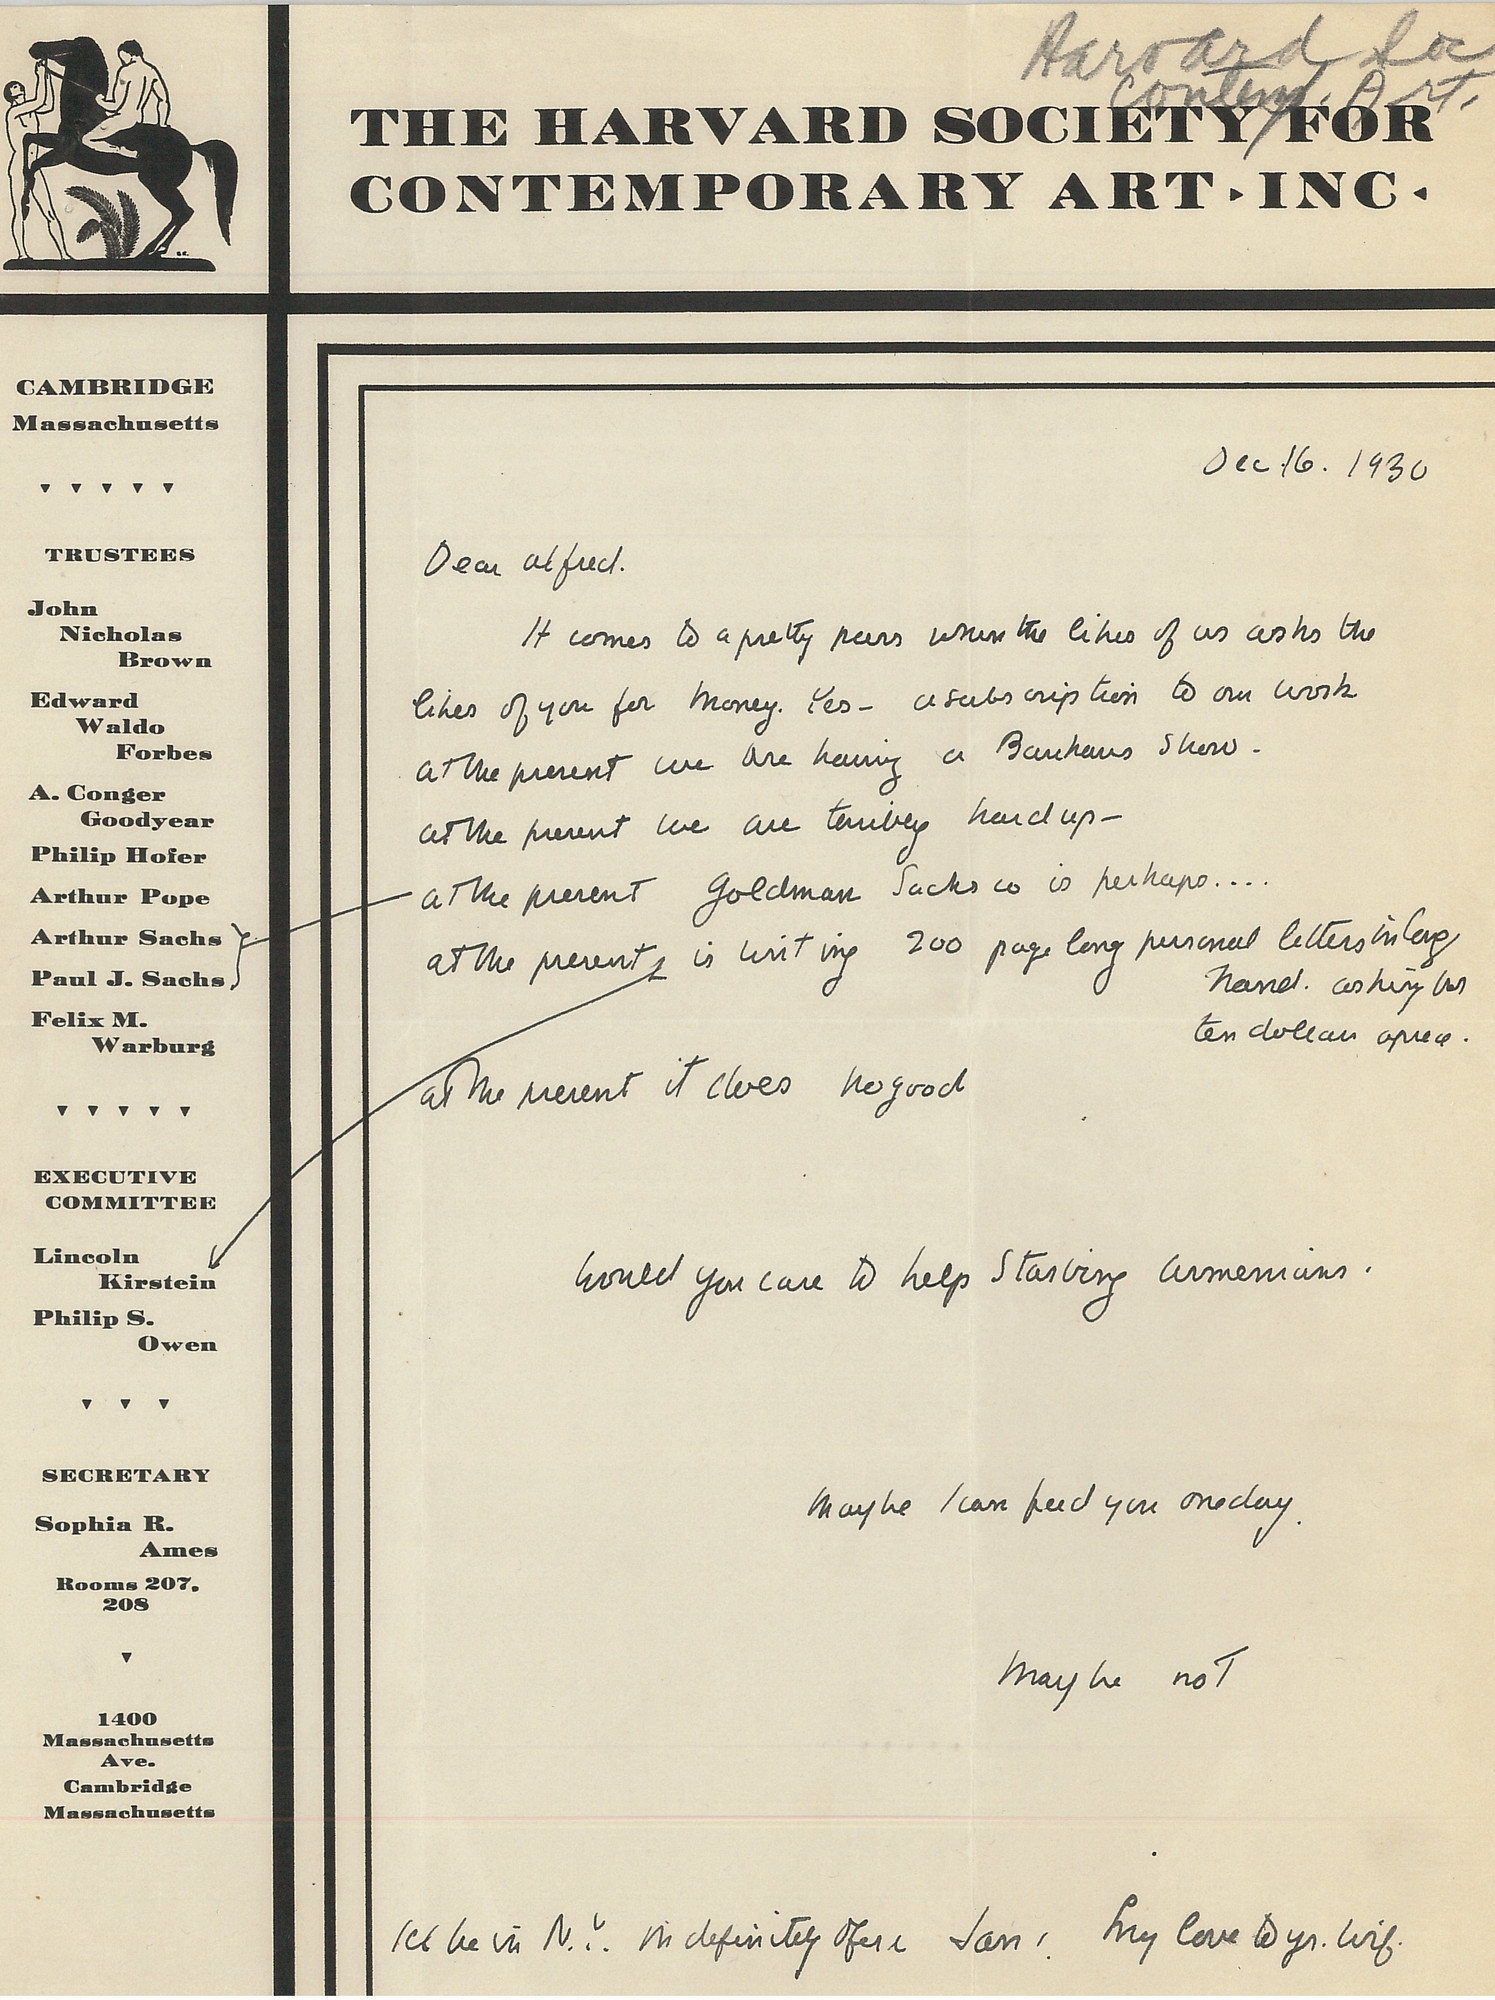 Harvard Soc
Contemp. Art.
THE HARVARD SOCIETY FOR
CONTEMPORARY ART · INC ·
CAMBRIDGE
Massachusetts
TRUSTEES
John
Nicholas
Brown
Edward
Waldo
Forbes
A. Conger
Goodyear
Philip Hofer
Arthur Pope
Arthur Sachs
Paul J. Sachs
Felix M.
Warburg
EXECUTIVE
COMMITTEE
Lincoln
Kirstein
Philip S.
Owen
SECRETARY
Sophia R.
Ames
Rooms 207,
208
1400
Massachusetts
Ave.
Cambridge
Massachusetts
Dec 16. 1930
Dear Alfred.
It comes to a pretty pass when the likes of us asks the
likes of you for money. Yes – a subscription to our work
at the present we are having a Bauhaus Show.
at the present we are terribly hard up –
at the present Goldman Sachs co is perhaps....
at the present is writing 200 page long personal letters in long
hand. asking for
ten dollars apiece.
at the present it does no good
Would you care to help Starving Armenians.
Maybe I can feed you one day.
Maybe not
I'll be in N.Y. indefinitely after Jan 1. My love to yr. wife.